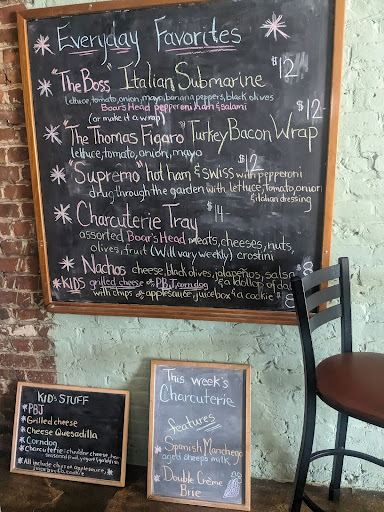 Everyday Favorites
"The Boss" Italian Submarine $12
lettuce, tomato, onion, mayo, banana peppers, black olives
Boar's Head pepperoni, ham & salami
(or make it a wrap) $12-
"The Thomas Figaro" Turkey Bacon Wrap
lettuce, tomato, onion, mayo $12
"Supremo" hot ham & swiss with pepperoni
drug through the garden with lettuce, tomato, onion
& italian dressing
Charcuterie Tray $14-
assorted Boar's Head meats, cheeses, nuts,
olives, fruit (will vary weekly) crostini
Nachos cheese, black olives, jalapeños, salsa $8
& a dollop of
KIDS grilled cheese or PB&J, corn dog
with chips or applesauce, juicebox & a cookie $8
KID'S STUFF
PBJ
Grilled cheese
Cheese Quesadilla
Corndog
Charcuterie: cheddar cheese, ham
yogurt & goldfish
All include chips or applesauce,
juice box & cookie
This week's
Charcuterie
features
Spanish Manchego
aged sheep's milk
Double Crème
Brie